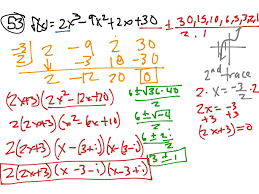 53) f(x) = 2x³ - 9x² + 2x + 30
± 30, 15, 10, 6, 5, 3, 2, 1
2 . 1
-3/2 | 2 -9 2 30
-3 18 -30
2 -12 20 0
2nd trace
(2x+3)(2x² - 12x + 20)
2(2x+3)(x² - 6x + 10)
2(2x+3)(x - (3+i))(x - (3-i))
2(2x+3)(x-3-i)(x-3+i)
6 ± √36-40
2
6 ± √-4
2
6 ± 2i
2
3 ± i
2 · x = -3/2 · 2
2x = -3
+3 +3
(2x+3) = 0